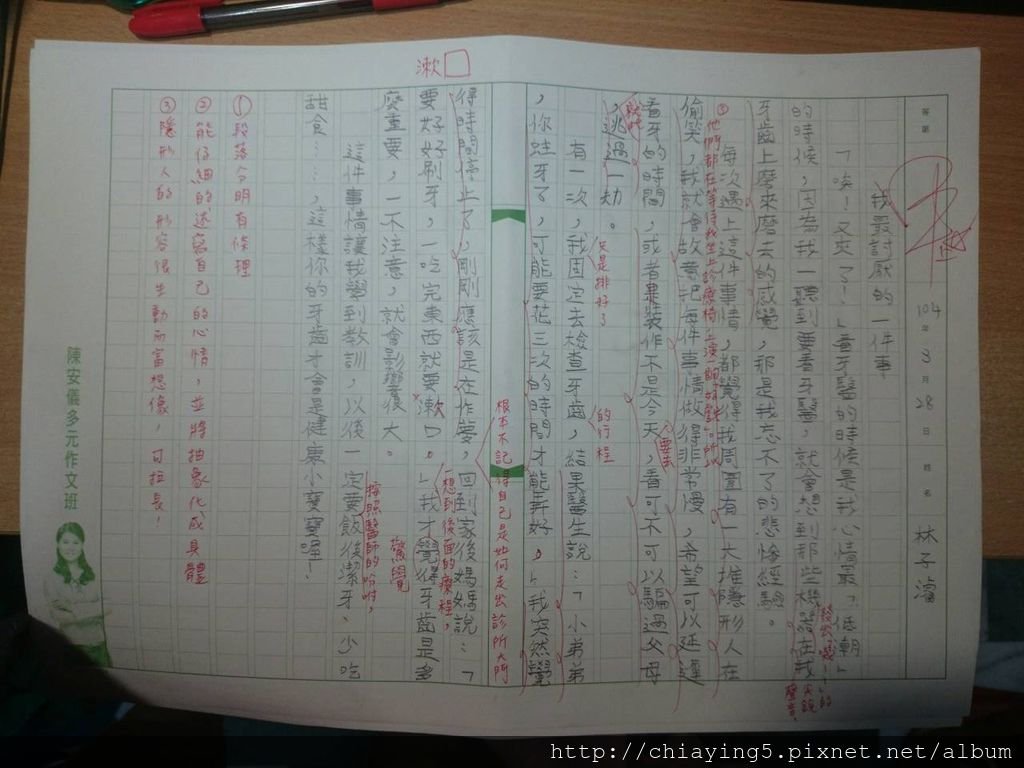 等第
104年3月28日 姓名 林子濬
我最討厭的一件事
「唉！又來了！」看牙醫的時候是我心情最「低潮」
的時候，因為我一聽到要看牙醫，就會想到那些機器在我
牙齒上磨來磨去的感覺，那是我忘不了的悲慘經驗。
每次遇上這件事情，都覺得我周圍有一大推隱形人在
他們都在等待我坐上診療椅，上演一齣
偷笑，我就會故意把每件事情做得非常慢，希望可以延遲
看牙的時間，或者是裝作不是今天，看可不可以騙過父母
，逃過一劫。
有一次，我固定去檢查牙齒，結果醫生說：「小弟弟
又是排好了
的行程
，你蛀牙了，可能要花三次的時間才能弄好。」我突然覺
根本不記得自己是如何走出診所大門
得時間停止了，剛剛應該是在作夢，回到家後媽媽說：「
想到後面的療程，
要好好刷牙，一吃完東西就要漱口。」我才覺得牙齒是多
漱
驚覺
麼重要，一不注意，就會影響很大。
這件事情讓我學到教訓，以後一定要飯後潔牙、少吃
按照醫師的吩咐，
甜食……，這樣你的牙齒才會是健康小寶寶哩！
①段落分明有條理
②能仔細的述寫自己的心情，並將抽象化成具體
③隱形人的形容很生動而富想像，可拉長！
陳安儀多元作文班
http://chiaying5.pixnet.net/album